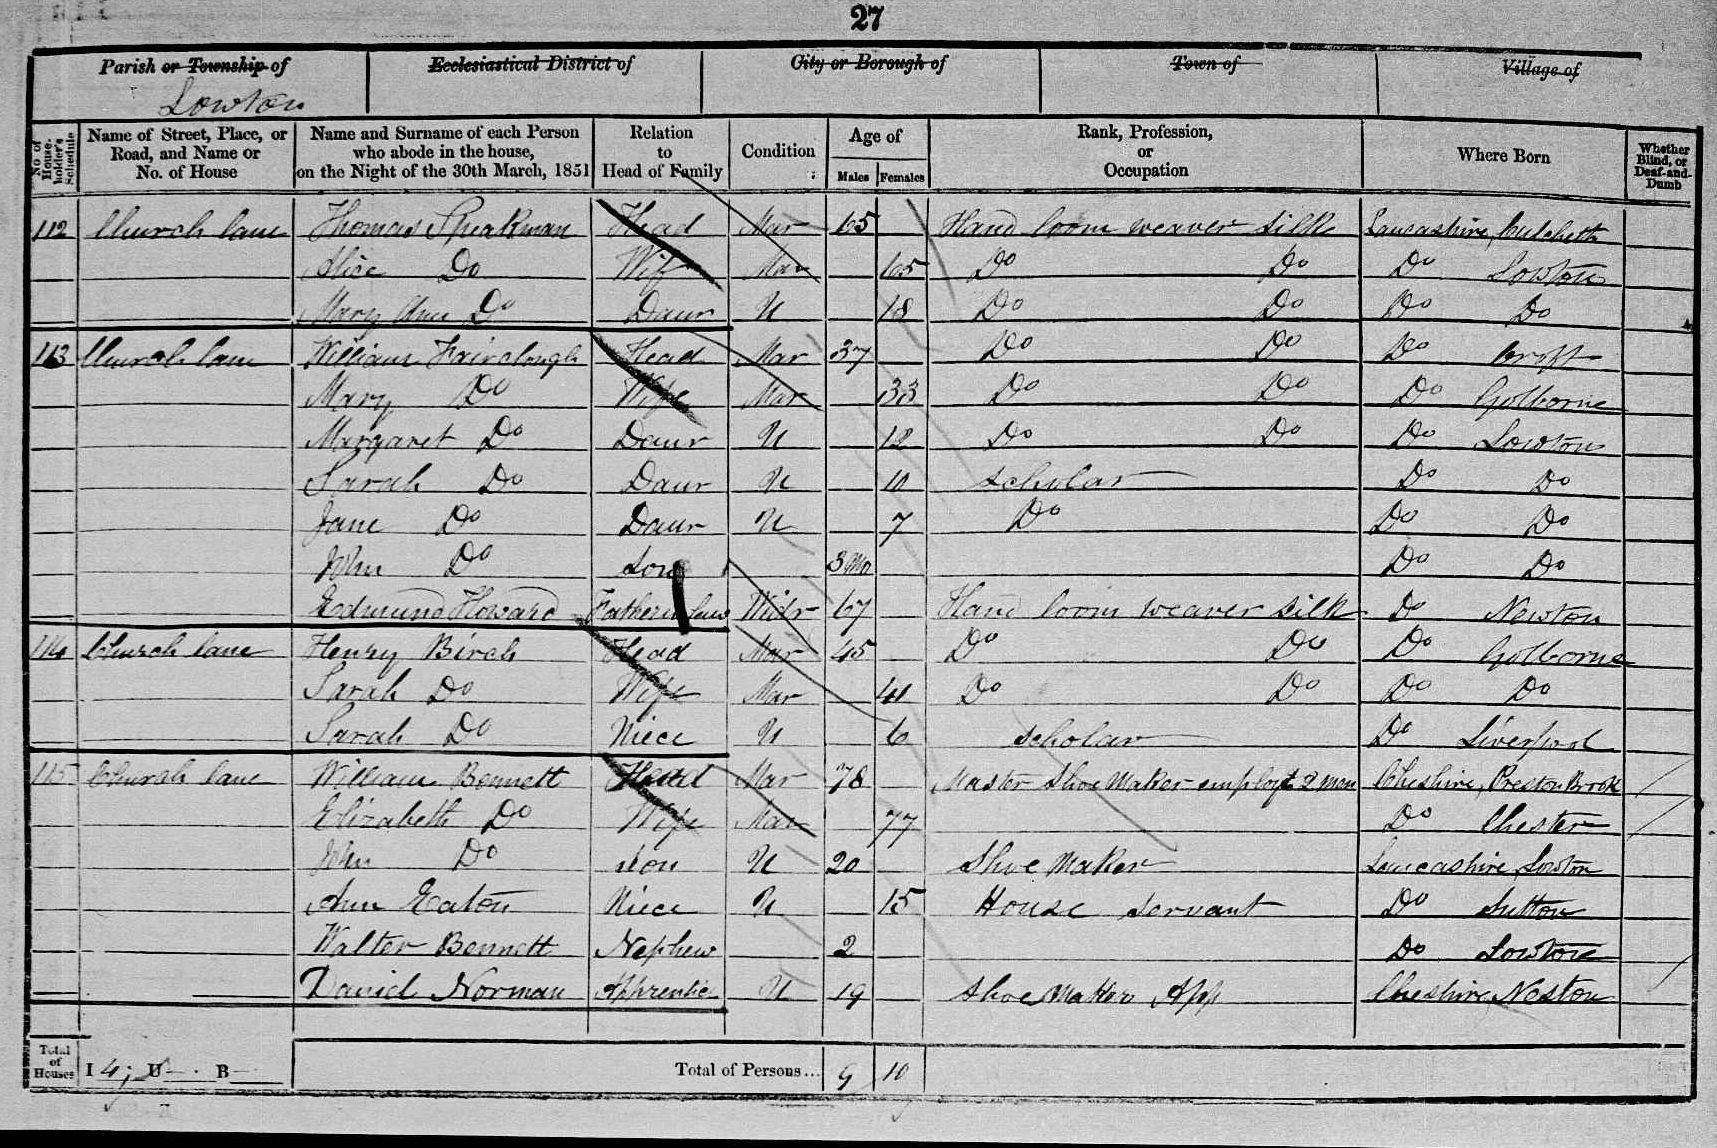 27
Parish or Township of Ecclesiastical District of City or Borough of Town of Village of
Lowton
No. of House-holder's Schedule
Name of Street, Place, or Road, and Name or No. of House
Name and Surname of each Person who abode in the house, on the Night of the 30th March, 1851
Relation to Head of Family
Condition
Age of
Males Females
Rank, Profession, or Occupation
Where Born
Whether Blind, or Deaf-and-Dumb
112 Church lane Thomas Speakman Head Mar 65 Hand loom weaver silk Lancashire, Culcheth
Alice Do Wife Mar 65 Do Do Do Lowton
Mary Ann Do Daur U 18 Do Do Do Do
113 Church lane William Fairclough Head Mar 37 Do Do Do Croft
Mary Do Wife Mar 33 Do Do Do Golborne
Margaret Do Daur U 12 Do Do Do Lowton
Sarah Do Daur U 10 scholar Do Do
Jane Do Daur U 7 Do Do Do
John Do Son 3 Mo Do Do
Edmund Howard Father in law Widr 67 Hand loom weaver silk Do Newton
114 Church lane Henry Birch Head Mar 45 Do Do Do Golborne
Sarah Do Wife Mar 41 Do Do Do Do
Sarah Do Niece U 6 scholar Do Liverpool
115 Church lane William Bennett Head Mar 78 Master Shoe Maker employg 2 men Cheshire, Preston Brook
Elizabeth Do Wife Mar 77 Do Chester
John Do son U 20 Shoe Maker Lancashire, Lowton
Ann Eaton Niece U 15 House servant Do Sutton
Walter Bennett Nephew 2 Do Lowton
Daniel Norman Apprentice U 19 Shoe Maker App Cheshire, Neston
Total of Houses I 4; U B Total of Persons... 9 10